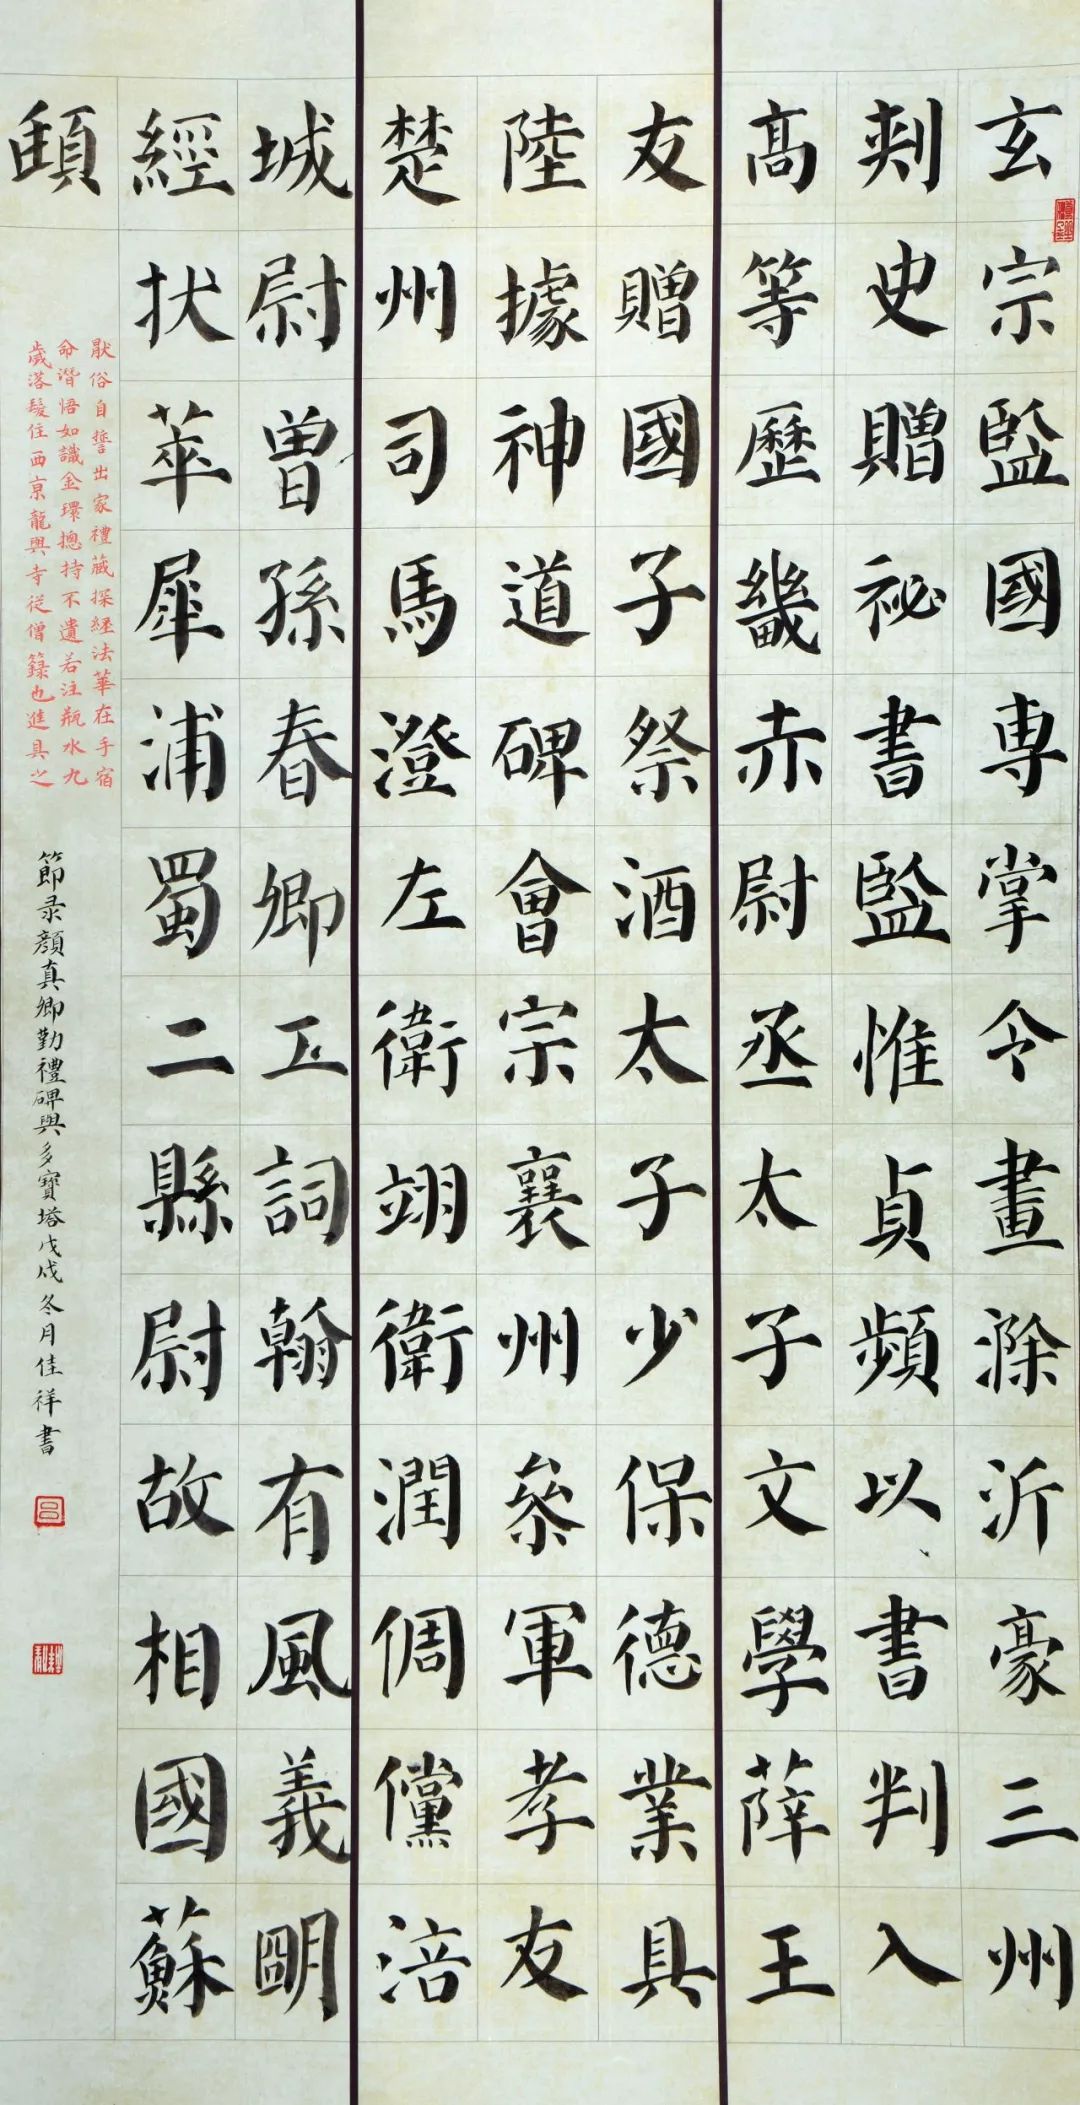 玄宗監國專掌令畫滁沂豪三州
刾史贈祕書監惟貞頻以書判入
髙等歷畿赤尉丞太子文學薛王
友贈國子祭酒太子少保德業具
陸據神道碑會宗襄州叅軍孝友
楚州司馬澄左衛翊衛潤倜儻涪
城尉曽孫春卿工詞翰有風義明
經拔萃犀浦蜀二縣尉故相國蘇
頲
厭俗自誓出家禮藏探經法華在手宿
命潛悟如識金環摠持不遺若注瓶水九
歲落髮住西京龍興寺從僧籙也進具之
節录顏真卿勤禮碑與多寶塔戊戌冬月佳祥書